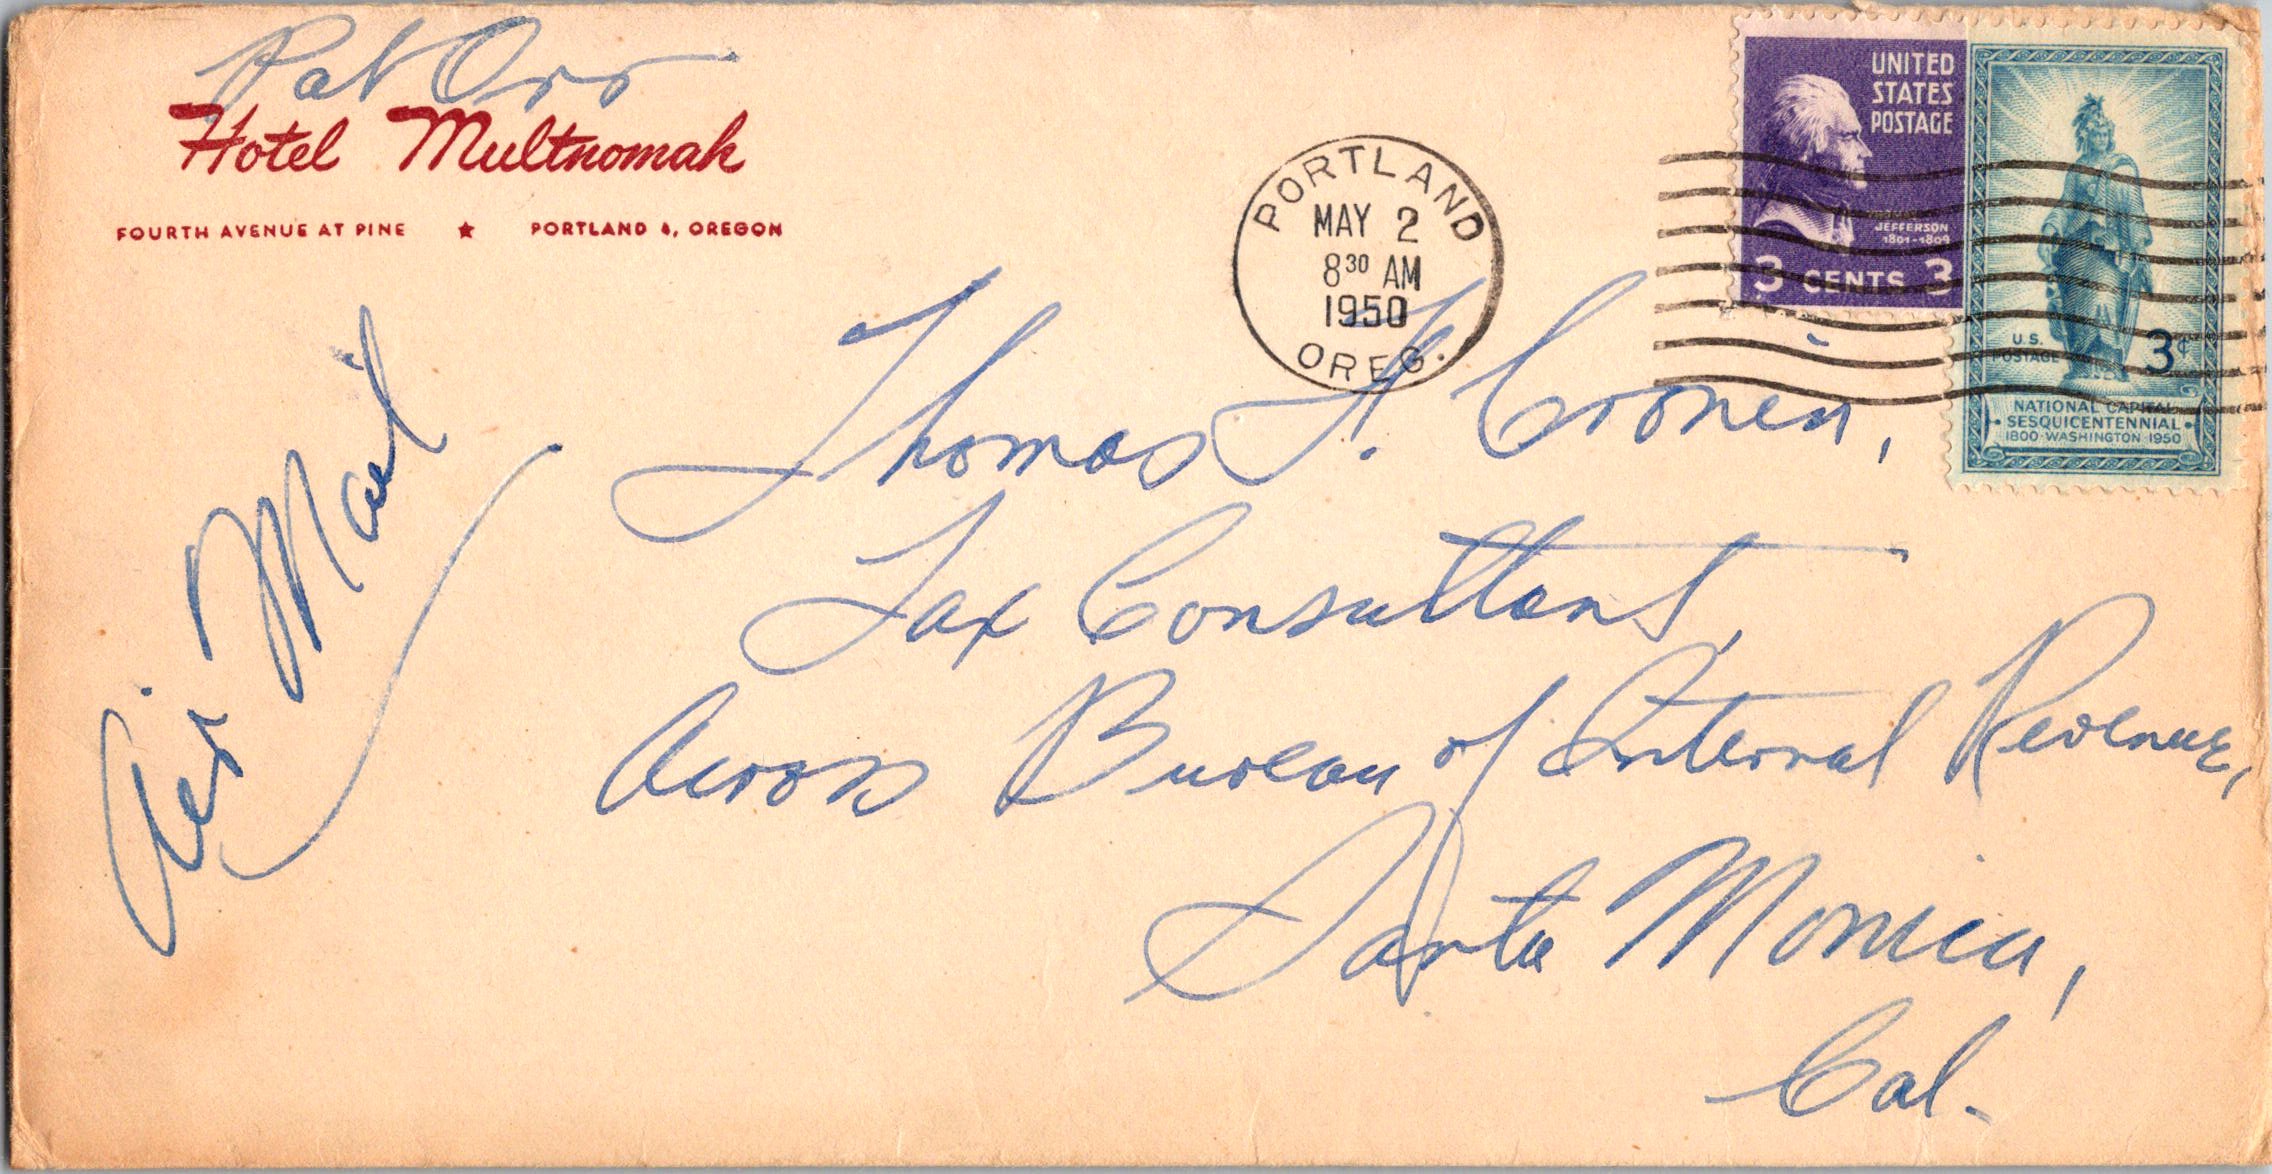 Pat Orr
Hotel Multnomah
FOURTH AVENUE AT PINE ★ PORTLAND 4, OREGON
PORTLAND
MAY 2
8 30 AM
1950
OREG.
UNITED
STATES
POSTAGE
JEFFERSON
1801-1809
3 CENTS 3
U.S.
POSTAGE
3¢
NATIONAL CAPITAL
SESQUICENTENNIAL
1800·WASHINGTON·1950
Air Mail
Thomas F. Cronin,
Tax Consultant,
Across Bureau of Internal Revenue,
Santa Monica,
Cal.